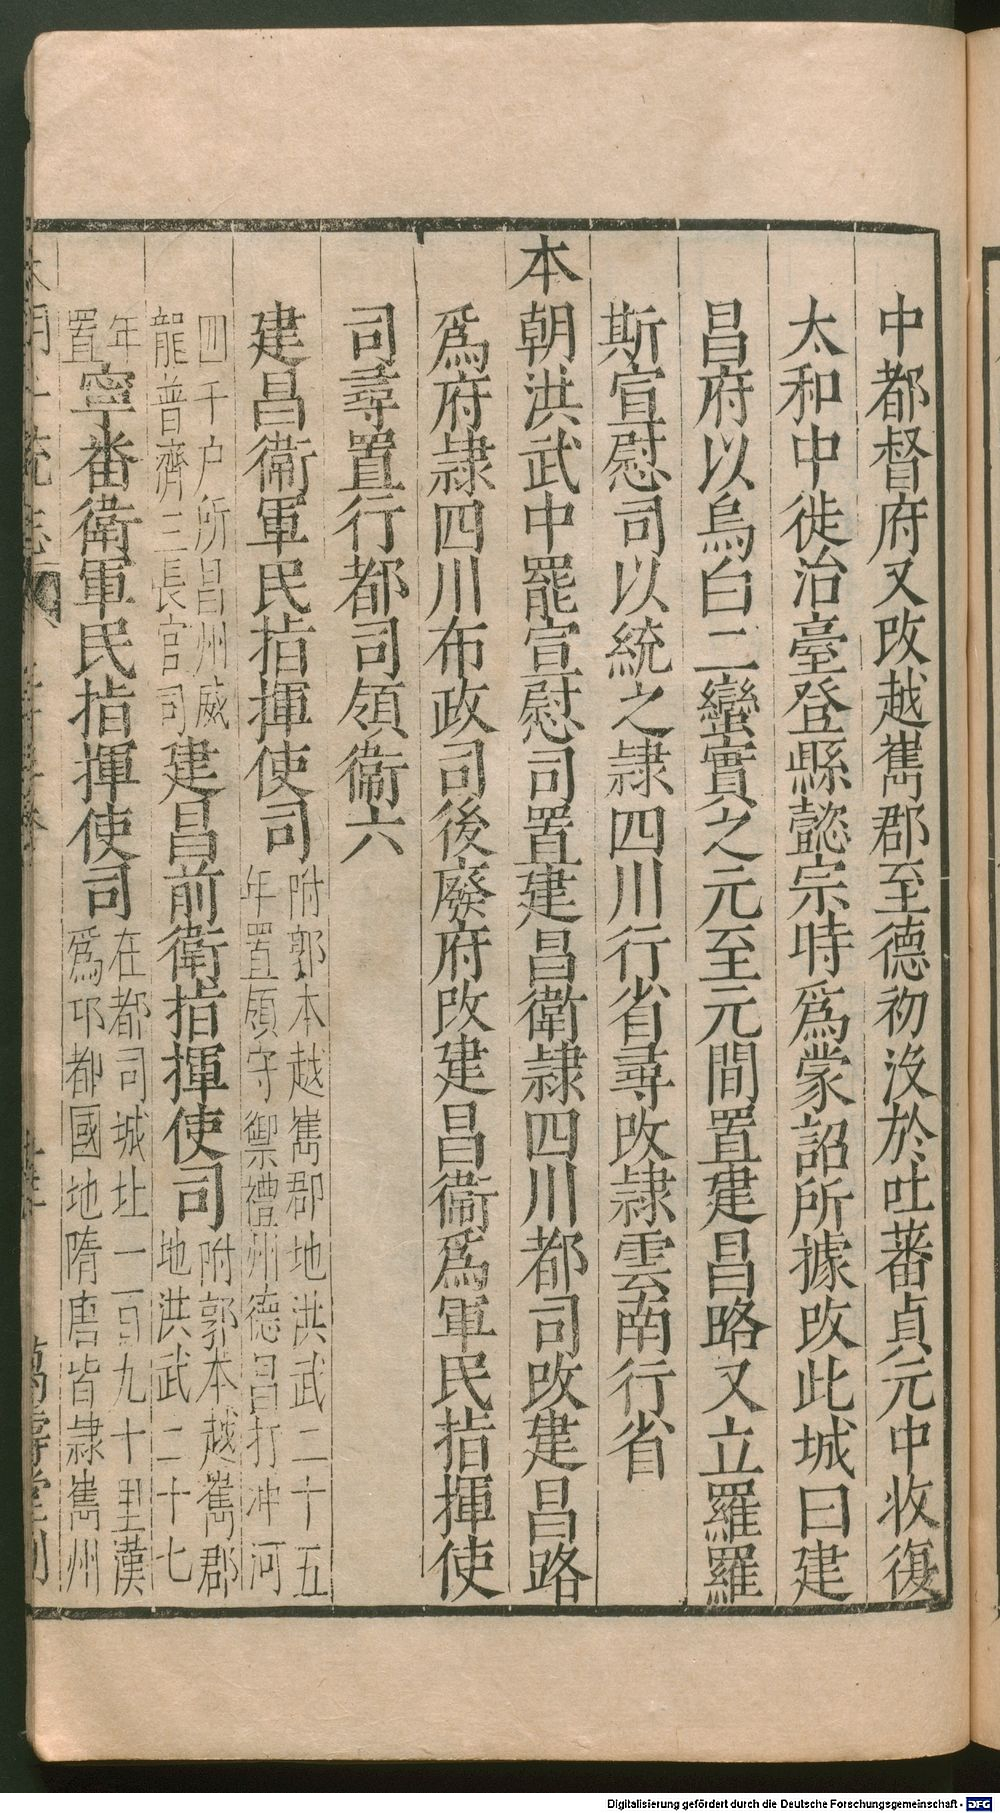 中都督府又改越嶲郡至德初沒於吐蕃貞元中收復
太和中徙治臺登縣懿宗時爲蒙詔所據改此城曰建
昌府以烏白二蠻實之元至元間置建昌路又立羅羅
斯宣慰司以統之隷四川行省尋改隷雲南行省
本朝洪武中罷宣慰司置建昌衛隷四川都司改建昌路
爲府隷四川布政司後廢府改建昌衛爲軍民指揮使
司尋置行都司領衛六
建昌衛軍民指揮使司附郭本越嶲郡地洪武二十五
年置領守禦禮州德昌打冲河
四千户所昌州威
龍普濟三長官司建昌前衛指揮使司附郭本越嶲郡
地洪武二十七
年
置寧番衛軍民指揮使司在都司城北一百九十里漢
爲邛都國地隋唐皆隷嶲州
萬壽堂刊
Digitalisierung gefördert durch die Deutsche Forschungsgemeinschaft - DFG